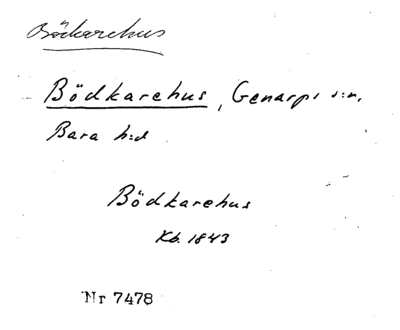 Bödkarehus
Bödkarehus, Genarps s:n,
Bara h:d
Bödkarehus
Kb. 1843
Nr 7478